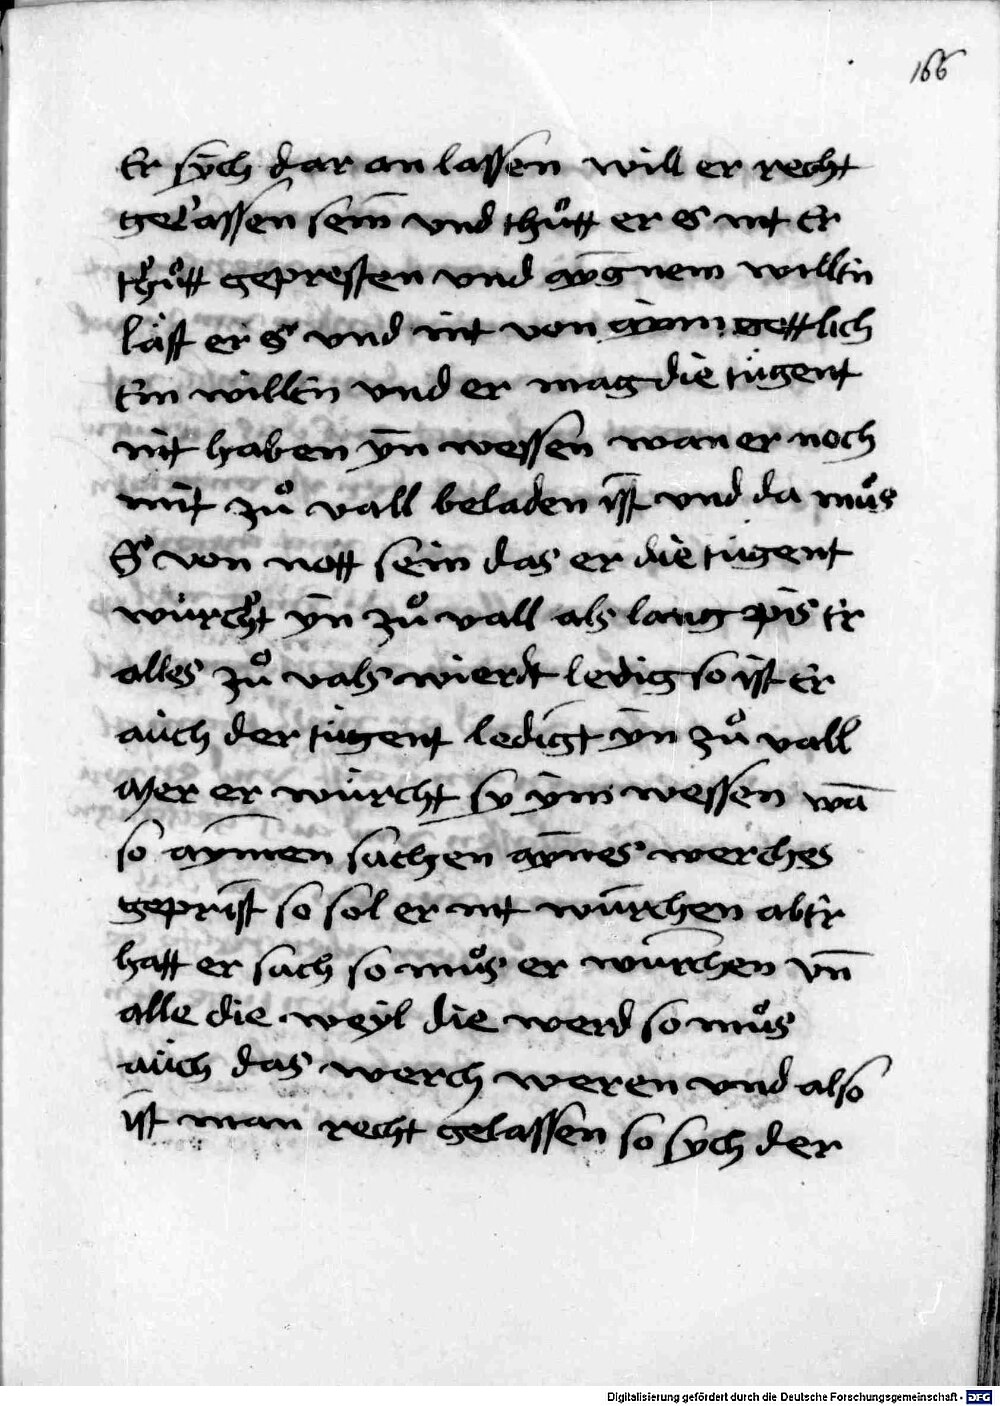 166
Er sych dar an lassen will er recht
gelassen sein vnd thuͦtt er es nit Er
thuͦtt gepresten vnd aygnem willen
låst er es vnd nit von aym gettlich
Em willen vnd er mag die tugent
nit haben yn wessen wan er noch
mit zuͦ vall beladen ist vnd da muͦs
Es von nott sein das er die tugent
würcht yn zuͦ vall als lang pis er
alles zuͦ vals wierdt ledig so ist Er
auch der tugent ledigt yn zuͦ vall
Aber er würcht sy ym wessen wā
so aymen sachen aynes werches
geprist so sol er nit würchen aber
hatt er sach so muͦs er würchen vn̄
alle die weyl die werd so muͦs
auch das werch weren vnd also
ist man recht gelassen so sych der
Digitalisierung gefördert durch die Deutsche Forschungsgemeinschaft - DFG